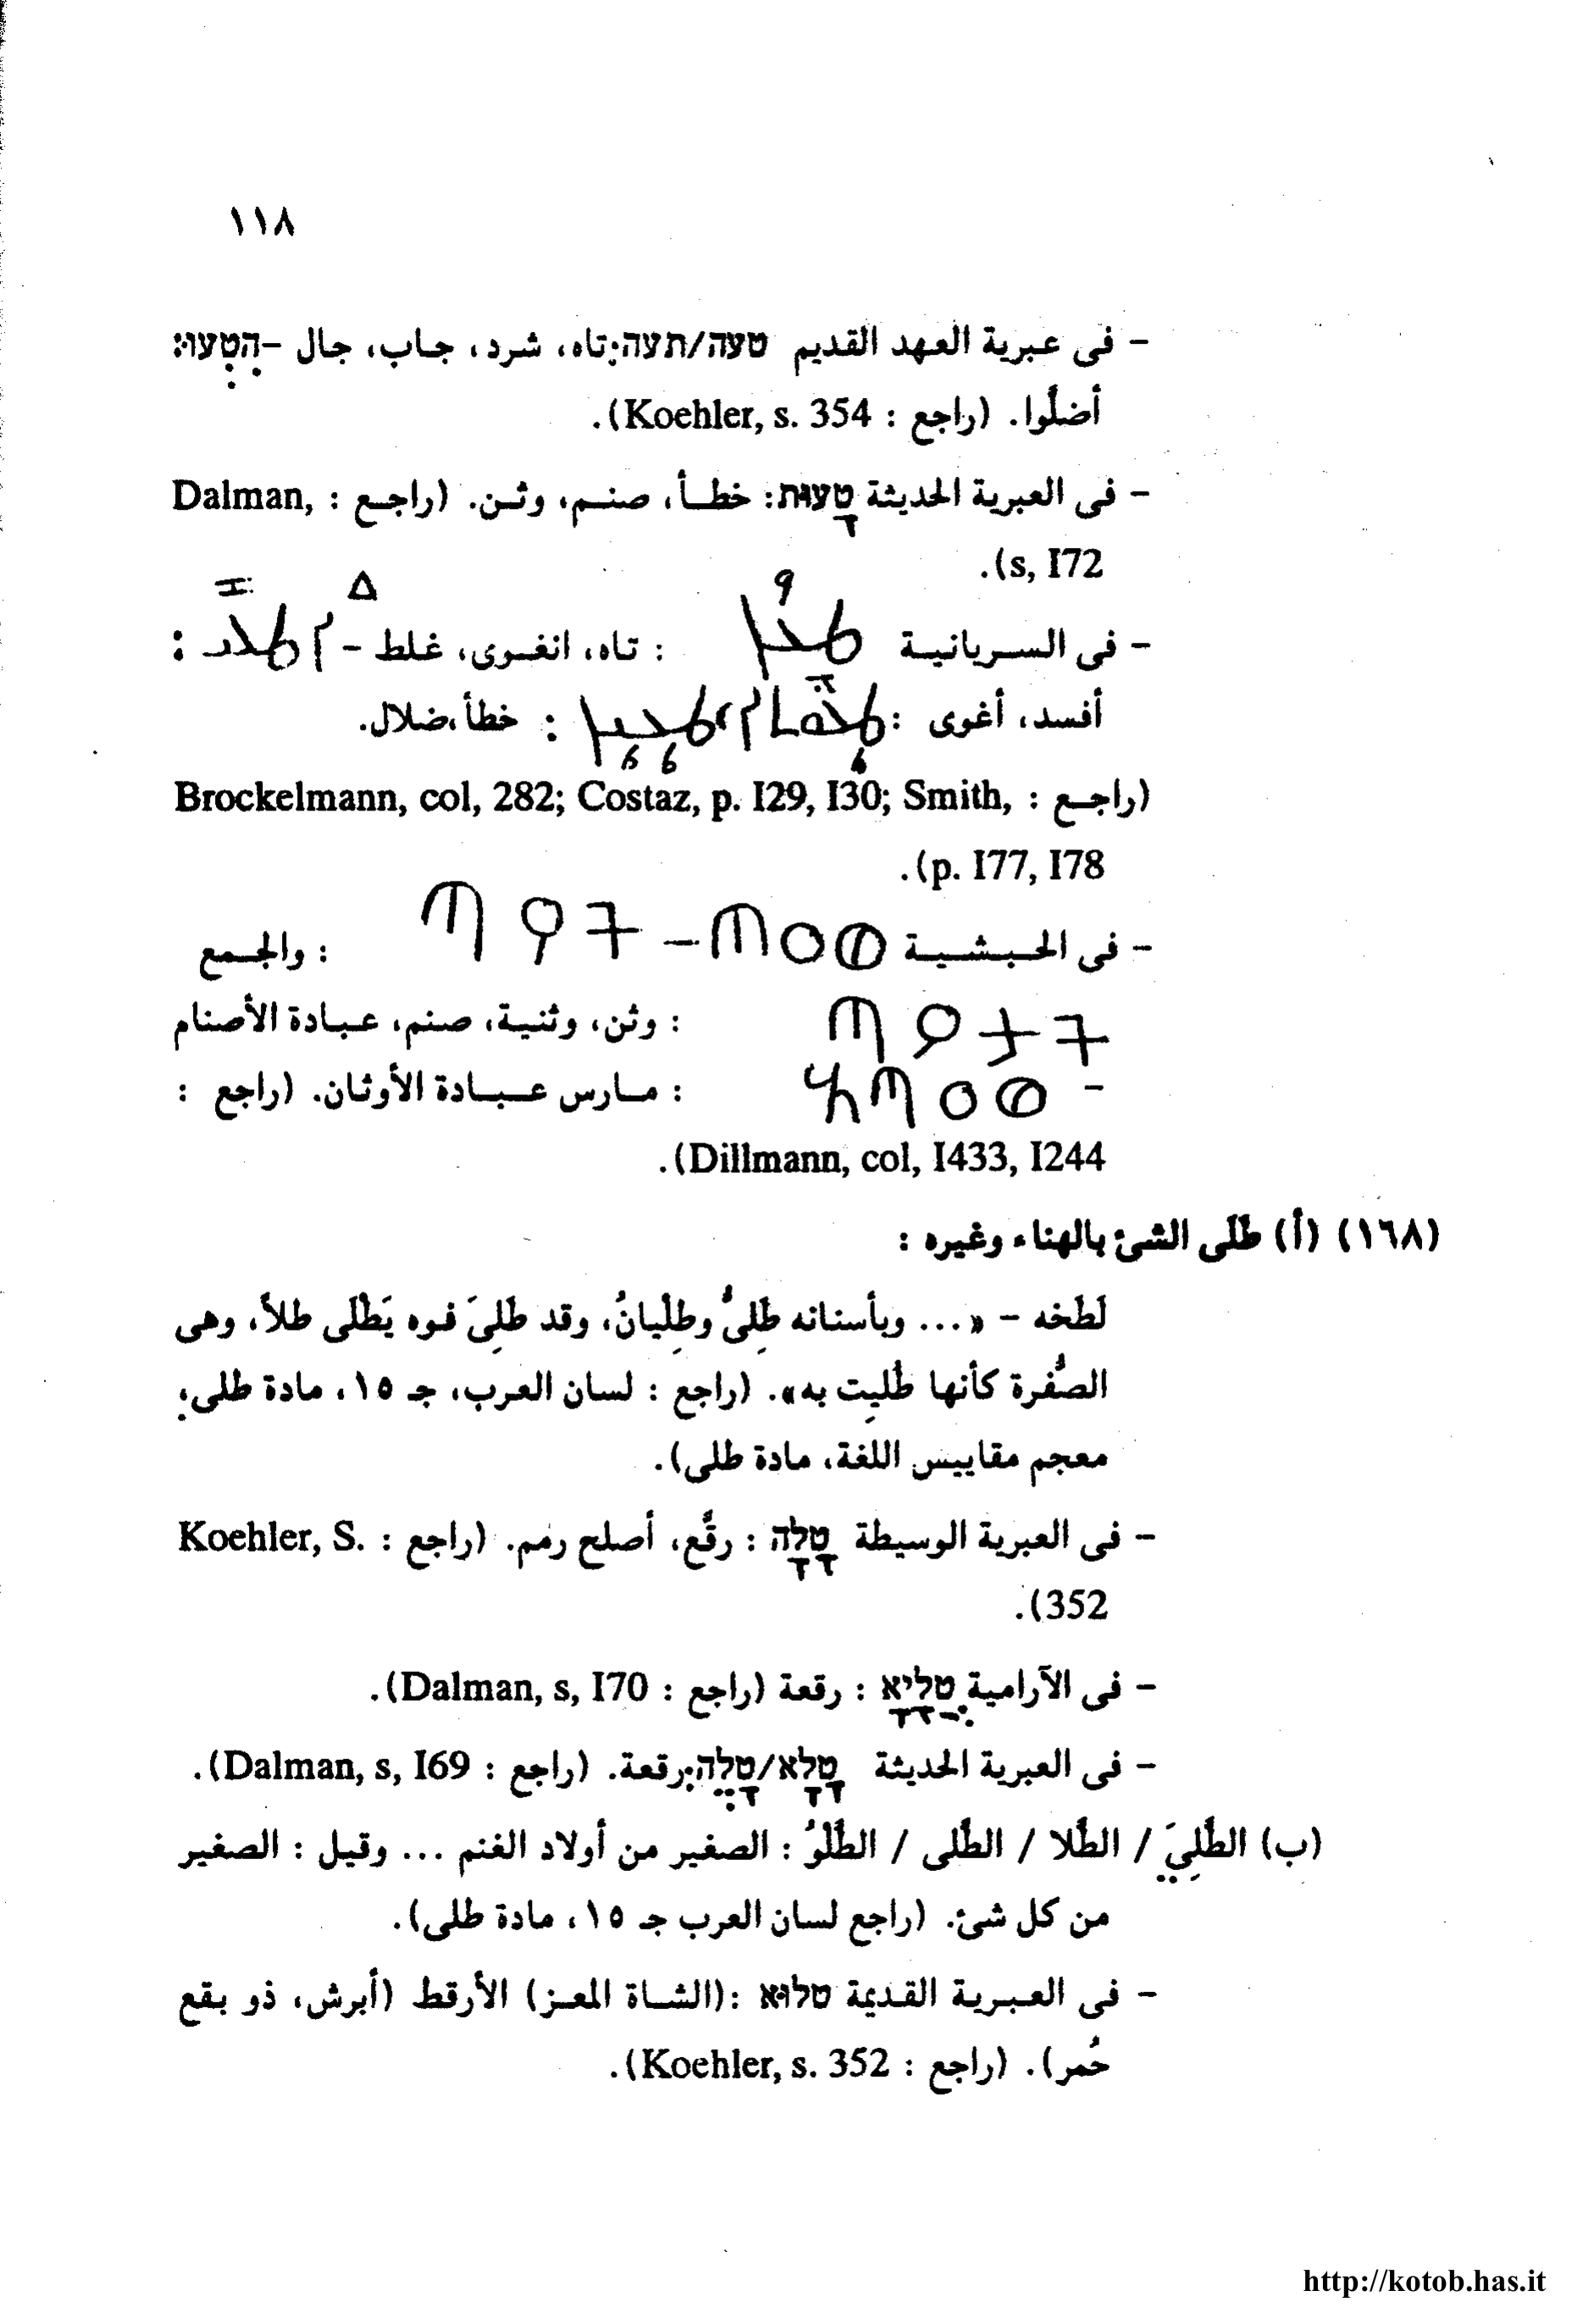 ١١٨
- فى عبرية العهد القديم טעה/תעה: تاه، شرد، جاب، جال - הִטְעוּ:
أضلُوا. (راجع : Koehler, s. 354).
- فى العبرية الحديثة טָעוּת: خطـأ، صنـم، وثـن. (راجـع : Dalman,
s, I72).
- فى السـريانيـة ܛܥܐ : تاه، انغـرى، غـلط - ܐܛܥܝ :
أفسد، أغوى : خطأ،ضلال.
(راجـع : Brockelmann, col, 282; Costaz, p. I29, I30; Smith,
p. I77, I78).
- فى الحـبـشـيـة ጣዖወ - ጣዖት : والجـمع
ጣዖታት : وثن، وثنيـة، صنم، عـبـادة الأصنام
- : مـارس عـبـادة الأوثـان. (راجع :
Dillmann, col, I433, I244).
(١٦٨) (أ) طَلَى الشئ بالهناء وغيره :
لَطَخه - «... وبأسنانه طَلِىٌّ وطِلْيانُ، وقد طَلِىَ فـوه يَطْلَى طلاً، وهى
الصُّفرة كأنها طُلِيت به». (راجع : لسان العـرب، جـ ١٥، مادة طلى،
معجم مقاييس اللغة، مادة طلى).
- فى العبرية الوسيطة טָלָה : رقَّع، أصلح رمم. (راجع : Koehler, S.
352).
- فى الآرامية טְלַיָא : رقعة (راجع : Dalman, s, I70).
- فى العبرية الحديثة טָלָא/טָלֶה: رقعة. (راجع : Dalman, s, I69).
(ب) الطَّلِيَ / الطَّلا / الطَّلى / الطَّلْوُ : الصغير من أولاد الغنم ... وقيل : الصغير
من كل شئ. (راجع لسان العرب جـ ١٥، مادة طلى).
- فى العـبـريـة القـديمة טלוּא :(الشـاة المعـز) الأرقط (أبرش، ذو بقع
حُمر). (راجع : Koehler, s. 352).
http://kotob.has.it